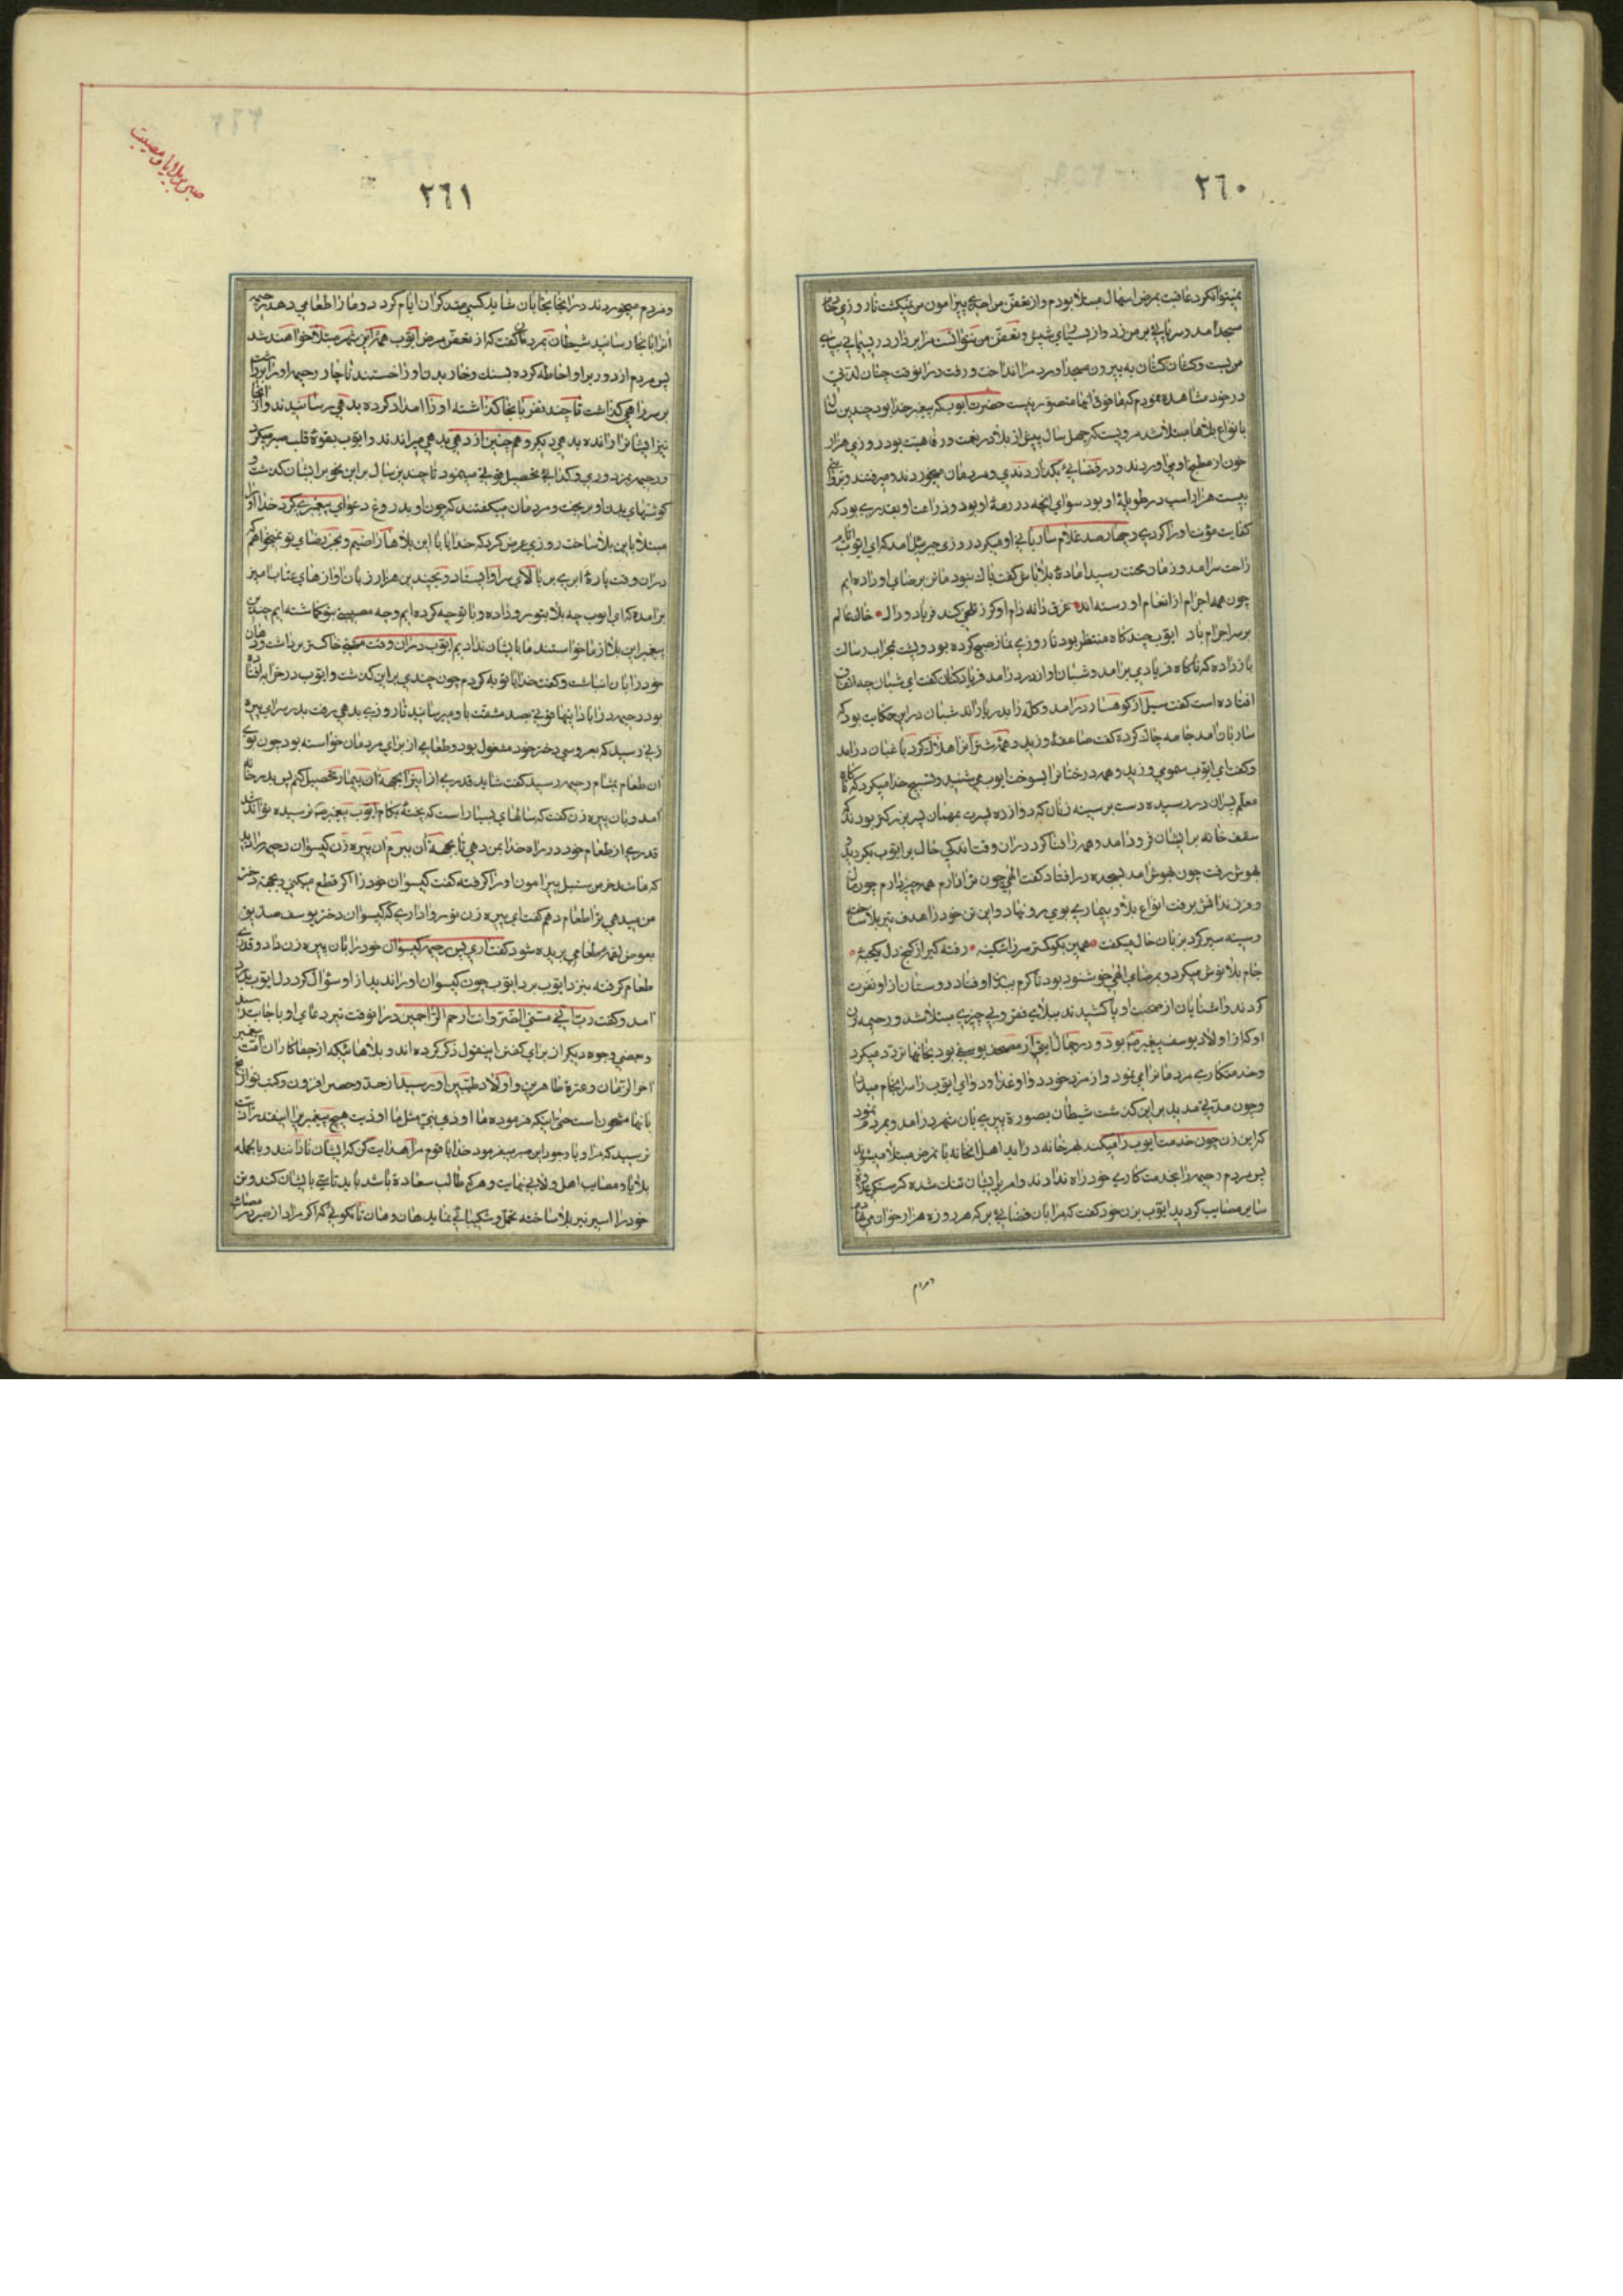 ٢٦٠
مسجد امد و سر پائی بر من زد و از بسیاری شپش و تعفن من نتوانست مرا بردارد ریسمانی بپای
من بست و کشان کشان به بیرون مسجد اورد مرا انداخت و رفت در انوقت چنان لذتی
در خود مشاهده نمودم که مافوق انها متصور نیست حضرت ایوب که پیغمبر خدا بود چندین سال
بانواع بلاها مبتلا شد مرویست که چهل سال پیش از بلا در نعمت و رفاهیت بود روزی هزار
خون از مطبخ او می اوردند و در فضائی میگذاردندی و مردمان میخوردند و میرفتند
بیست هزار اسب در طویلهٔ او بود سوای انچه در رمهٔ او بود و زراعت او بقدری بود که
کفایت مؤنت او را کردی و چهار صد غلام ساربانی او میکرد روزی جبرئیل امد که ای ایوب ایام
راحت سرامد و زمان محنت رسید امادهٔ بلا باش گفت باک نبود ما تن برضای او داده ایم
چون همه اجزام از انعام او رسته اند
بر سر اجزام باد ایوب چند کاه منتظر بود تا روزی نماز صبح کرده بود و پشت محراب رسالت
باز داده که ناکاه فریادی برامد و شبان او از در درامد فریاد کنان گفت ای شبان چه اتفاق
افتاده است گفت سیل از کوهسار درامد و گله را بدریا راند شبان در این حکایت بود که
ساربان امد جامه چاک کرده گفت صاعقهٔ وزید و همهٔ شتران را هلاک کرد باغبان درامد
و گفت ای ایوب سمومی وزید و همه درختانرا بسوخت ایوب می شنید و تسبیح خدا میکرد که ناگاه
معلم پسران در رسید دست بر سینه زنان که دوازده پسرت بمهمان پسر بزرگتر بودند که
سقف خانه بر ایشان فرود امد و همه را فنا کرد در ان وقت اندکی حال بر ایوب بگردید
بهوش رفت چون بهوش امد بسجده در افتاد گفت الهی چون ترا دارم همه چیز دارم چون مال
و فرزندانش برفت انواع بلا و بیماری بوی رو نهاد و این تن خود را هدف تیر بلا ساخته
و سینه سپر کرد بزبان حال میگفت
جام بلا نوش میکرد و برضای الهی خوشنود بود تا کرم ببدن او فتاد دوستان از او نفرت
کردند و اشنایان از صحبت او پا کشیدند ببلای فقر و بی چیزی مبتلا شد و رحیمه زن
او که از اولاد یوسف پیغمبر بود و در جمال ایتی از مصحف یوسفی بود بخانها تردد میکرد
و خدمتکاری مردمانرا می نمود و از مزد خود دوا و غذا و دوای ایوب را سرانجام میداد
و چون مدتی مدید بر این گذشت شیطان بصورة پیری بان شهر درامد و بمردم نمود
که این زن چون خدمت ایوب را میکند بهر خانه درامد اهل انخانه بانمرض مبتلا میشوند
پس مردم رحیمه را بخدمتکاری خود راه ندادند و امر بر ایشان تنگ شده گرسنگی علاوه
سایر مصایب گردید ایوب بزن خود گفت که مرا بان فضائی بر که هر روزه هزار خوان می نهادم
و مردم
٢٦١
صبر بر بلایا و مصیبت
و مردم میخوردند در انجا بخوابان شاید کسی متذکر ان ایام کردد و ما را طعامی دهد رحیمه
انرا بانجا رسانید شیطان بمردمان گفت که از تعفن مرض ایوب همهٔ این شهر مبتلا خواهند شد
پس مردم از دور بر او احاطه کرده بسنگ و خار بدن او را خستند ناچار رحیمه او را برداشت
بر سر راهی گذاشت تا چند نفر بانجا گذاشته او را امداد کرده بدهی رسانیدند و از انجا
نیز ایشانرا رانده بدهی دیگر و همچنین از دهی بدهی میراندند و ایوب بقوهٔ قلب صبر میکرد
و رحیمه بمزدوری و گدائی تحصیل قوتی مینمود تا چندین سال بر این نحو بر ایشان گذشت و
گوشتهای بدن او بریخت و مردمان میگفتند که چون او بدروغ دعوای پیغمبری کرد خدا او را
مبتلا باین بلا ساخت روزی عرض کرد که خدایا با این بلاها راضیم و بجز رضای تو نمیخواهم که
در ان وقت پارهٔ ابری بر بالای سر او ایستاد و بچندین هزار زبان اوازهای عتاب امیز
برامد که ای ایوب چه بلا بتو رو داده و با تو چه کرده ایم و چه مصیبتی بتو گماشته ایم چندین
پیغمبر این بلا از ما خواستند ما بایشان ندادیم ایوب در ان وقت مشتی خاکستر برداشت و دهان
خود را بان انباشت و گفت خدایا توبه کردم چون چندی بر این گذشت و ایوب در خرابه افتاده
بود رحیمه در ابادانیها قوتی بصد مشقت باو میرسانید تا روزی بدهی رفت بدر سرای پیره
زنی رسید که بعروسی دختر خود مشغول بود و طعامی از برای مردمان خواسته بود چون بوی
ان طعام بمشام رحیمه رسید گفت شاید قدری از این را بجههٔ ان بیمار تحصیل کنم پس بدر خانه
امد و بان پیره زن گفت که سالهای بسیار است که پختهٔ بکام ایوب پیغمبر نرسیده تواند شد
قدری از طعام خود در راه خدا بمن دهی تا بجههٔ ان ببرم ان پیره زن گیسوان رحیمه را دید
که مانند خرمن سنبل پیرامون او را گرفته گفت گیسوان خود را اگر قطع میکنی و بجههٔ دختر
من میدهی ترا طعام دهم گفت ای پیره زن تو روا داری که گیسوان دختر یوسف صدیق
بعوض لقمهٔ طعامی بریده شود گفت اری پس رحیمه گیسوان خود را بان پیره زن داد و قدری
طعام گرفته بنزد ایوب برد ایوب چون گیسوان او را ندید از او سؤال کرد دل ایوب بدرد
امد و گفت رب انی مسنی الضر و انت ارحم الراحمین در انوقت تیر دعای او باجابت رسید
و بعضی وجوه دیگر از برای گفتن اینقول ذکر کرده اند و بلاهائیکه از جفاکاران امت پیغمبر
اخر الزمان و عترة طاهرین و اولاد طیبین او رسید از حد و حصر افزون و کتب تواریخ
بانها مشحون است حتی اینکه فرموده ما اوذی نبی مثل ما اوذیت هیچ پیغمبریرا اینقدر اذیت
نرسید که مرا و با وجود این صبر میفرمود خدایا قوم مرا هدایت کن که ایشان نادانند و بالجمله
بلایا و مصایب اهل ولا بی نهایت و هر که طالب سعادة باشد باید تاسی بایشان کند و تن
خود را اسیر تیر بلا ساخته تحمل و شکیبائی نماید هان و هان تا نگوئی که اگر مراد از صبر در مصائب